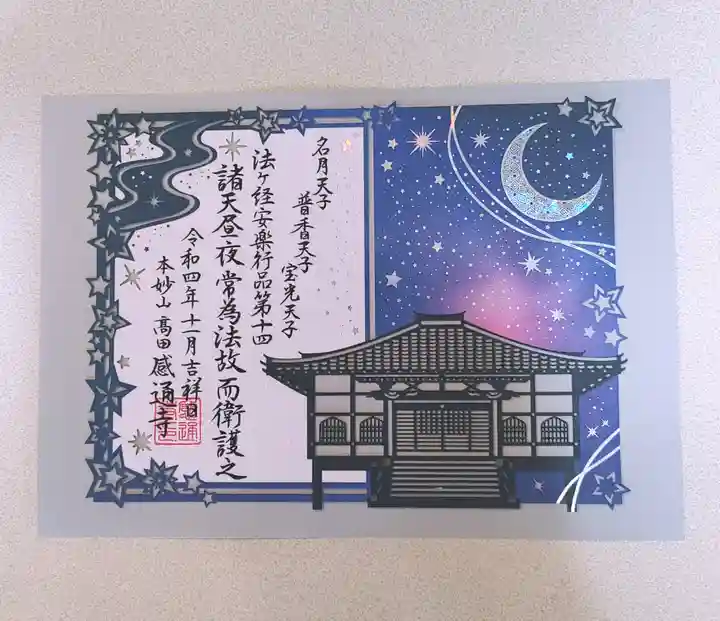 名月天子
普香天子
宝光天子
法ヶ経安楽行品第十四
諸天昼夜常為法故而衛護之
令和四年十一月吉祥日
本妙山高田感通寺